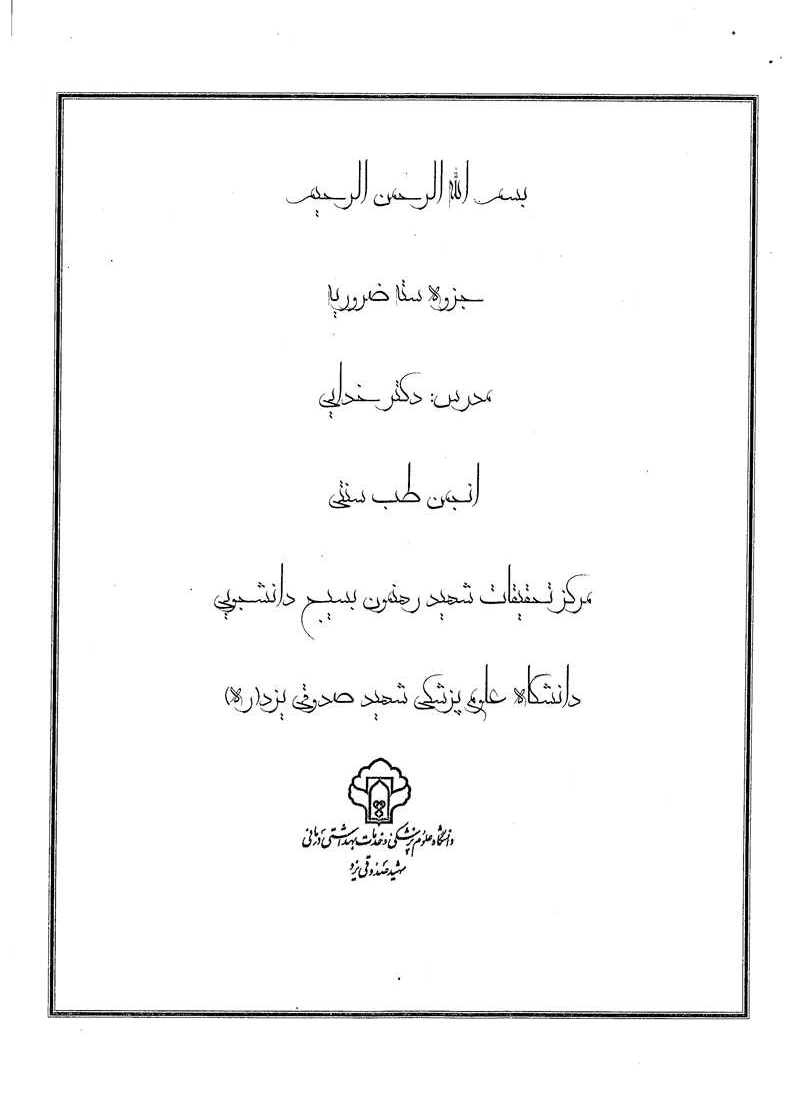 بسم الله الرحمن الرحیم
جزوه سته ضروریه
مدرس: دکتر خدایی
انجمن طب سنتی
مرکز تحقیقات شهید رهنمون بسیج دانشجویی
دانشگاه علوم پزشکی شهید صدوقی یزد(ره)
دانشگاه علوم پزشکی و خدمات بهداشتی درمانی
شهید صدوقی یزد